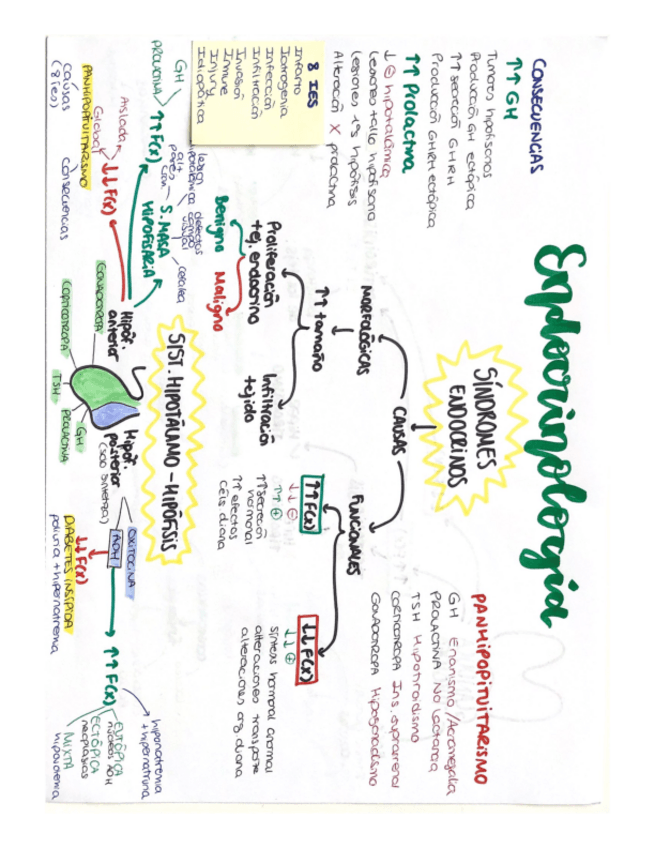 Endocrinología
SÍNDROMES
ENDOCRINOS
CAUSAS
MORFOLÓGICAS
↑↑ tamaño
Proliferación
tej. endocrino
Benigno
Maligno
Infiltración
tejido
FUNCIONALES
↑↑ F(x)
↓↓ ⊖
↑↑ ⊕
↑↑ secreción
hormonal
↑↑ efectos
céls diana
↓↓ F(x)
↓↓ ⊕
síntesis hormonal anormal
alteraciones transporte
alteraciones org diana
CONSECUENCIAS
↑↑ GH
Tumores hipofisarios
Producción GH ectópica
↑↑ secreción GHRH
Producción GHRH ectópica
↑↑ Prolactina
↓ ⊖ hipotalámica
Lesiones tallo hipofisario
Lesiones 1as hipófisis
Alteración X prolactina
8 IES
Infarto
Iatrogenia
Infección
Infiltración
Invasión
Inmune
Injury
Idiopática
PANHIPOPITUITARISMO
GH Enanismo/Acromegalia
PROLACTINA No lactancia
TSH Hipotiroidismo
CORTICOTROPA Ins. suprarrenal
GONADOTROPA Hipogonadismo
SIST. HIPOTÁLAMO-HIPÓFISIS
Hipóf.
anterior
S. MASA
HIPOFISARIA
lesión
hipotalámica
alt
pares
defectos
campo
visual
cefalea
↑↑ F(x)
GH
PROLACTINA
↓↓ F(x)
Aislada
Global
PANHIPOPITUITARISMO
causas
(8 ies)
consecuencias
GONADOTROPA
CORTICOTROPA
TSH
PROLACTINA
GH
Hipóf.
posterior
(SOLO sintetiza)
OXITOCINA
ADH
↓↓ F(x)
DIABETES INSÍPIDA
poliuria + hipernatremia
↑↑ F(x)
hiponatremia
+ hipernatruria
EUTÓPICA
núcleos ADH
ECTÓPICA
neoplasias
MIXTA
hipovolemia